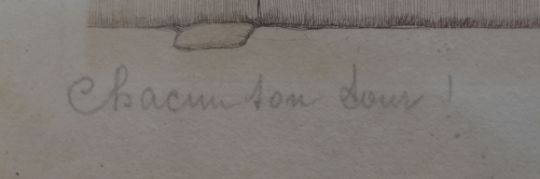 Chacun son tour !